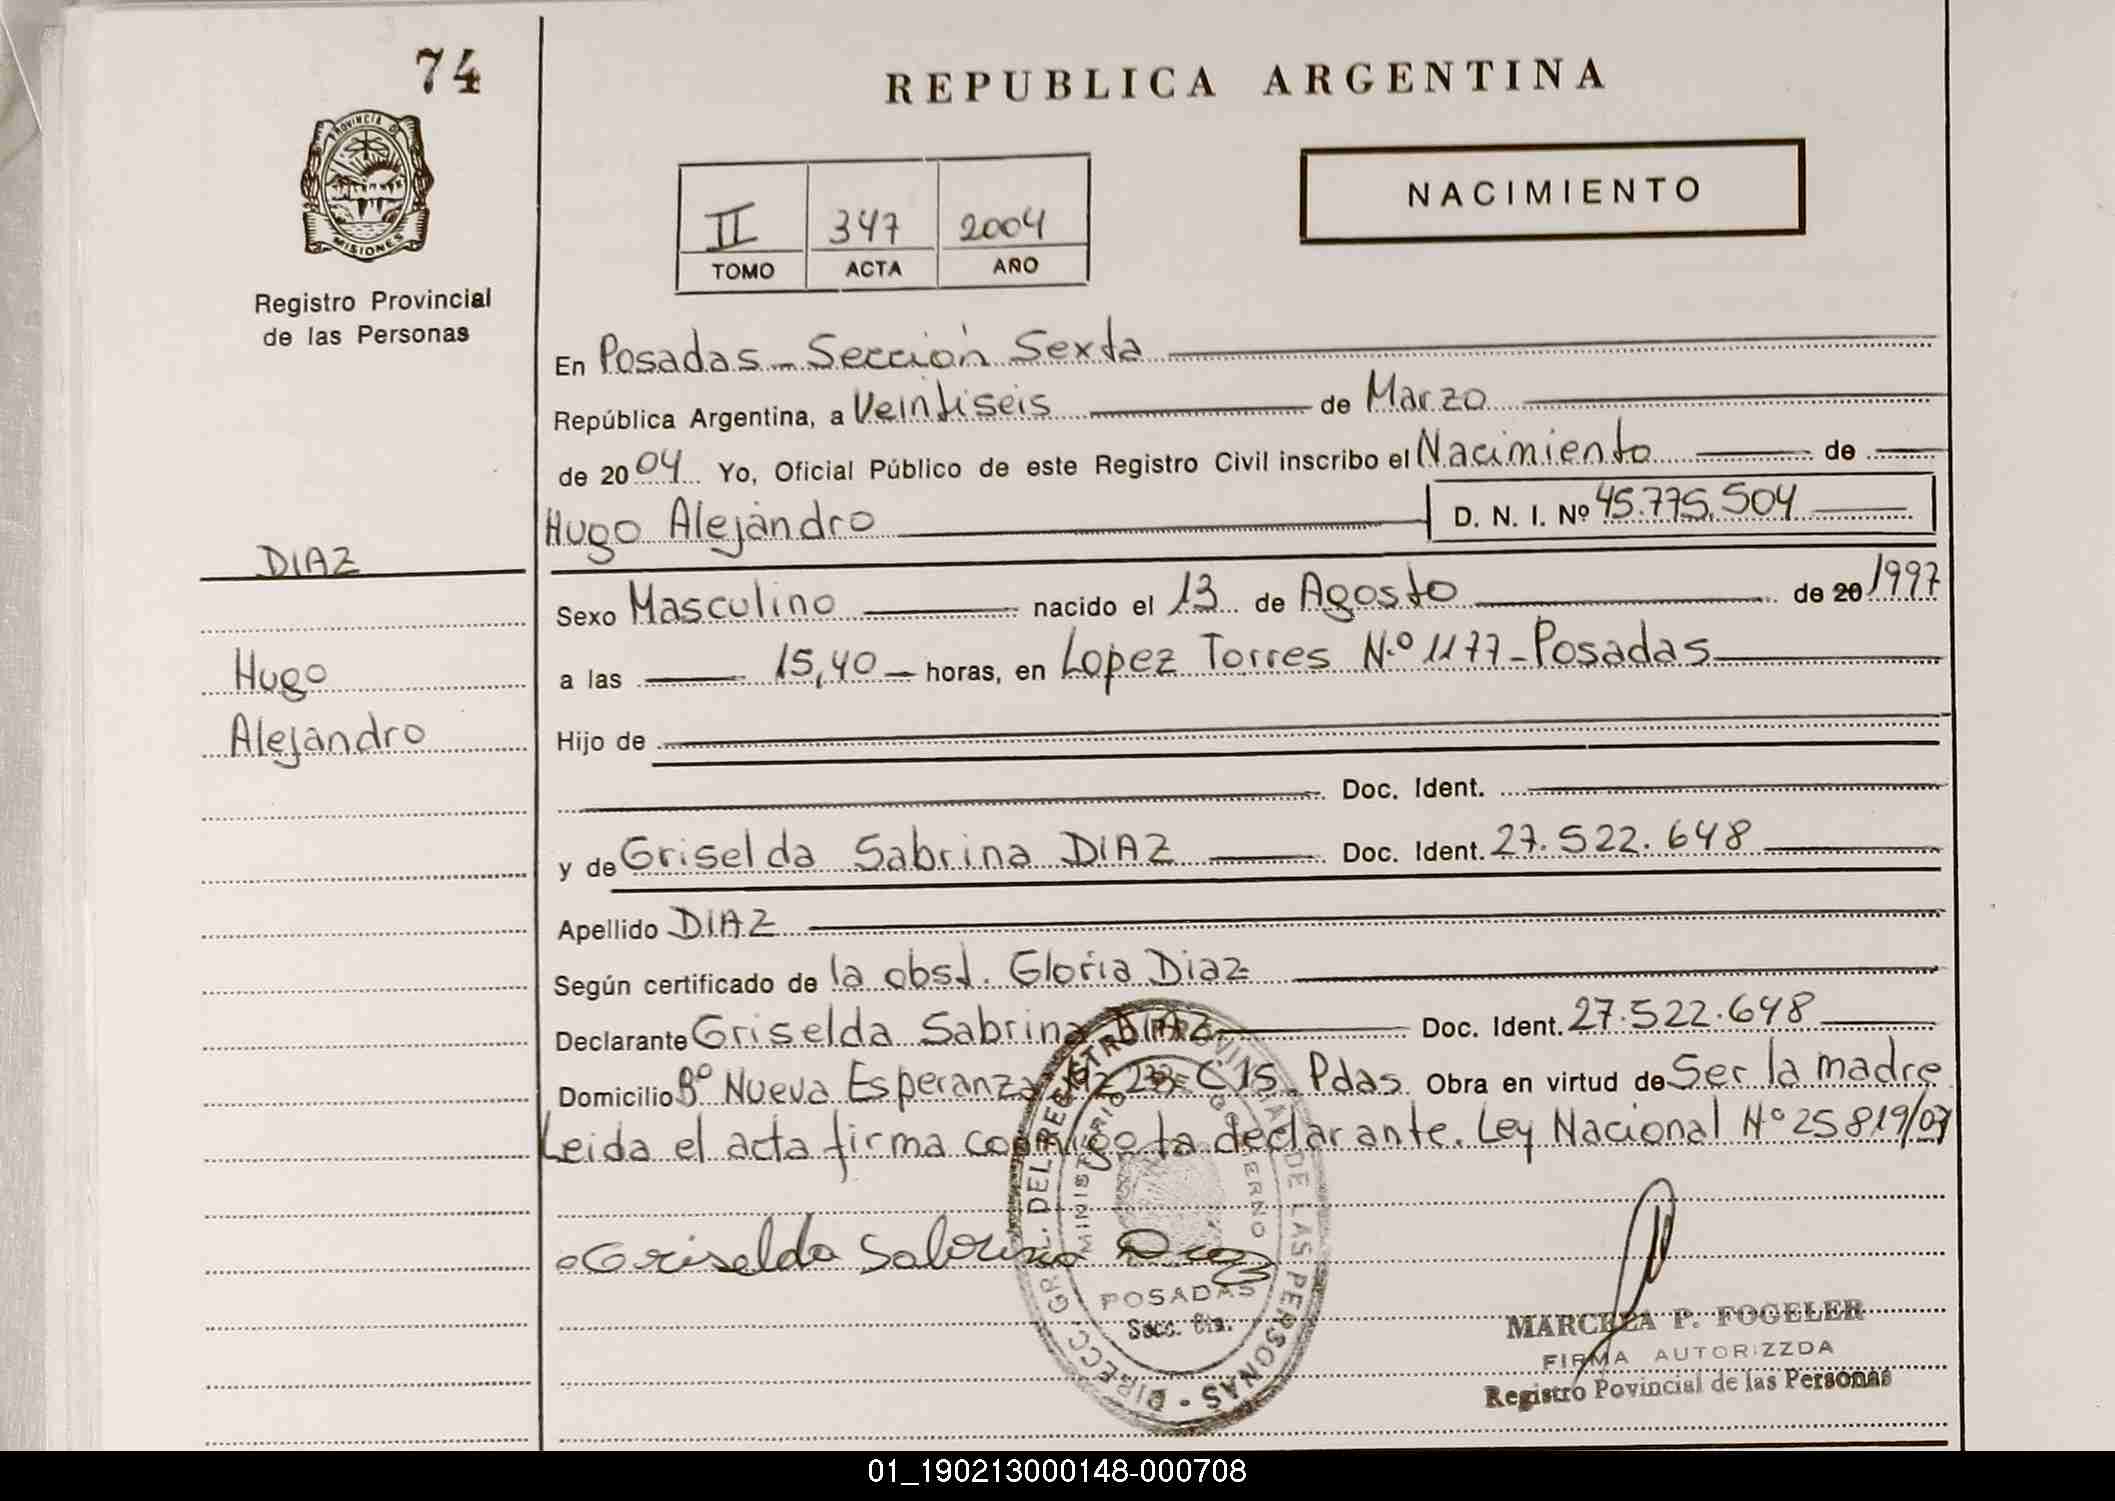 74
PROVINCIA DE
MISIONES
Registro Provincial
de las Personas
REPUBLICA ARGENTINA
II 347 2004
TOMO ACTA AÑO
NACIMIENTO
En Posadas - Sección Sexta
República Argentina, a Veintiseis de Marzo
de 2004 Yo, Oficial Público de este Registro Civil inscribo el Nacimiento de
Hugo Alejandro D. N. I. Nº 45.775.504
DIAZ
Hugo
Alejandro
Sexo Masculino nacido el 13 de Agosto de 20 1997
a las 15,40 horas, en Lopez Torres N.º 1177 - Posadas
Hijo de
Doc. Ident.
y de Griselda Sabrina DIAZ Doc. Ident. 27.522.648
Apellido DIAZ
Según certificado de la obst. Gloria Diaz
Declarante Griselda Sabrina DIAZ Doc. Ident. 27.522.648
Domicilio Bº Nueva Esperanza Mz 23 C 15 Pdas. Obra en virtud de Ser la madre
Leida el acta firma conmigo la declarante. Ley Nacional Nº 25819/03
Griselda Sabrina Diaz
DIRECC. GRAL. DEL REGISTRO PROVINCIAL DE LAS PERSONAS
MINISTERIO DE GOBIERNO
POSADAS
Secc. 6ta.
MARCELA P. FOGELER
FIRMA AUTORIZZDA
Registro Povincial de las Personas
01_190213000148-000708